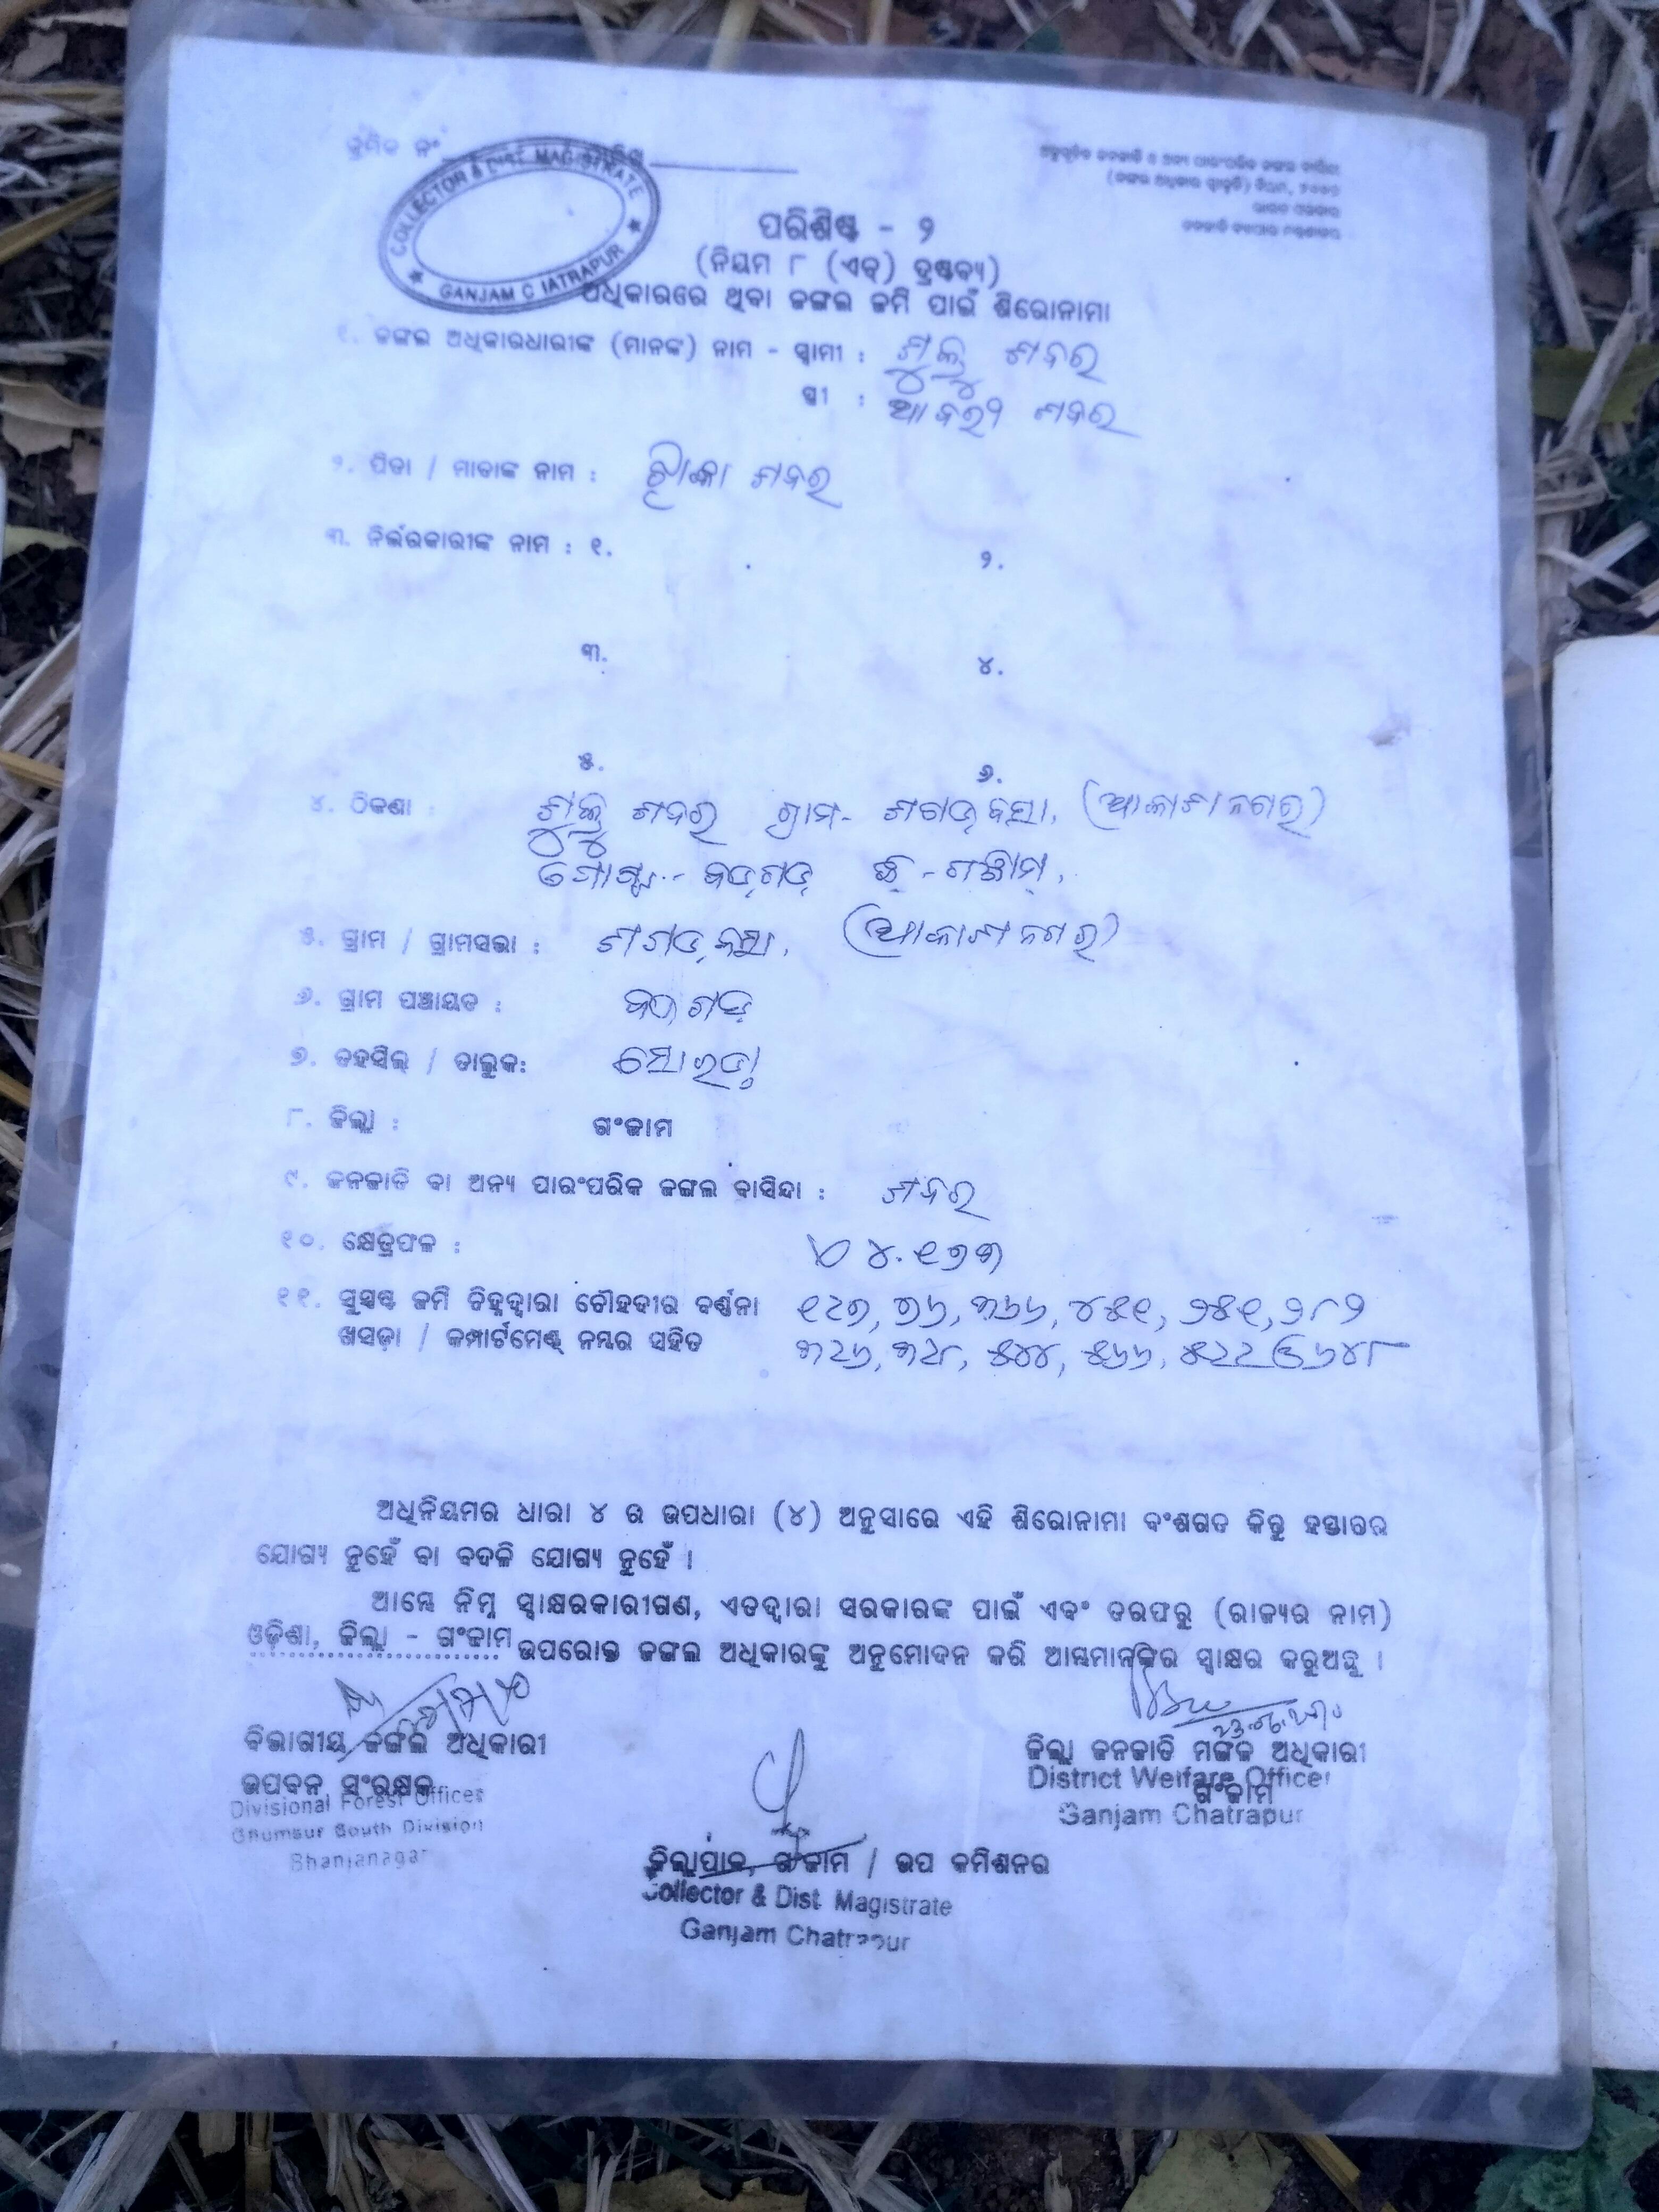 କ୍ରମିକ ନଂ
COLLECTOR & DIST MAGISTRATE
GANJAM C IATRAPUR
ଅନୁସୂଚିତ ଜନଜାତି ଓ ଅନ୍ୟ ପାରଂପରିକ ଜଙ୍ଗଲ ବାସିନ୍ଦା
(ଜଙ୍ଗଲ ଅଧିକାର ସ୍ୱୀକୃତି) ନିୟମ, ୨୦୦୭
ଭାରତ ସରକାର
ପରିଶିଷ୍ଟ - ୨
(ନିୟମ ୮ (ଏଚ୍) ଦ୍ରଷ୍ଟବ୍ୟ)
ଅଧିକାରରେ ଥିବା ଜଙ୍ଗଲ ଜମି ପାଇଁ ଶିରୋନାମା
୧. ଜଙ୍ଗଲ ଅଧିକାରଧାରୀଙ୍କ (ମାନଙ୍କ) ନାମ - ସ୍ୱାମୀ : ଶବର
ସ୍ତ୍ରୀ : ଶବର
୨. ପିତା / ମାତାଙ୍କ ନାମ : ଶବର
୩. ନିର୍ଭରକାରୀଙ୍କ ନାମ : ୧. ୨.
୩. ୪.
୫. ୬.
୪. ଠିକଣା : ଶବର ଗ୍ରାମ- (ଆକାଶନଗର)
ବଡ଼ଗଡ଼ ଗଞ୍ଜାମ
୫. ଗ୍ରାମ / ଗ୍ରାମସଭା : (ଆକାଶନଗର)
୬. ଗ୍ରାମ ପଞ୍ଚାୟତ : ବଡ଼ଗଡ଼
୭. ତହସିଲ୍ / ତାଲୁକ: ସୋରଡ଼ା
୮. ଜିଲ୍ଲା : ଗଂଜାମ
୯. ଜନଜାତି ବା ଅନ୍ୟ ପାରଂପରିକ ଜଙ୍ଗଲ ବାସିନ୍ଦା : ଶବର
୧୦. କ୍ଷେତ୍ରଫଳ : ୪.୧୭୩
୧୧. ସୁସ୍ପଷ୍ଟ ଜମି ଚିହ୍ନଦ୍ୱାରା ଚୌହଦୀର ବର୍ଣ୍ଣନା ୧୨୭, ୭୬, ୩୬୬, ୪୫୧, ୨୫୧, ୨୮୨
ଖସଡ଼ା / କମ୍ପାର୍ଟମେଣ୍ଟ୍ ନମ୍ବର ସହିତ ୩୨୬, ୩୨୮, ୫୪୪, ୫୬୬, ୫୨୨ ଓ ୬୪୮
ଅଧିନିୟମର ଧାରା ୪ ର ଉପଧାରା (୪) ଅନୁସାରେ ଏହି ଶିରୋନାମା ବଂଶଗତ କିନ୍ତୁ ହସ୍ତାନ୍ତର
ଯୋଗ୍ୟ ନୁହେଁ ବା ବଦଳି ଯୋଗ୍ୟ ନୁହେଁ ।
ଆମ୍ଭେ ନିମ୍ନ ସ୍ୱାକ୍ଷରକାରୀଗଣ, ଏତଦ୍ୱାରା ସରକାରଙ୍କ ପାଇଁ ଏବଂ ତରଫରୁ (ରାଜ୍ୟର ନାମ)
ଓଡ଼ିଶା, ଜିଲ୍ଲା - ଗଂଜାମ ଉପରୋକ୍ତ ଜଙ୍ଗଲ ଅଧିକାରଙ୍କୁ ଅନୁମୋଦନ କରି ଆମ୍ଭମାନଙ୍କର ସ୍ୱାକ୍ଷର କରୁଅଛୁ ।
ବିଭାଗୀୟ ଜଙ୍ଗଲ ଅଧିକାରୀ
ଉପବନ ସଂରକ୍ଷକ
Divisional Forest Officer
Ghumsur South Division
Bhanjanagar
ଜିଲ୍ଲା ଜନଜାତି ମଙ୍ଗଳ ଅଧିକାରୀ
ଗଂଜାମ
District Welfare Officer
Ganjam Chatrapur
ଜିଲ୍ଲାପାଳ, ଗଂଜାମ / ଉପ କମିଶନର
Collector & Dist. Magistrate
Ganjam Chatrapur